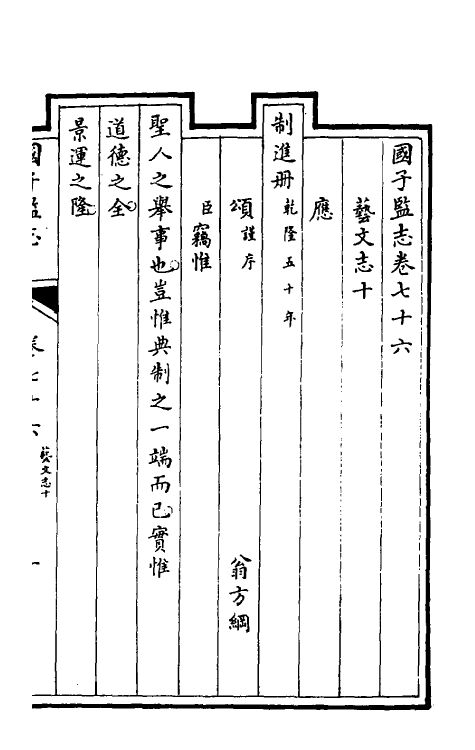 國子監志卷七十六
藝文志十
應
制進册乾隆五十年
頌謹序 翁方綱
臣竊惟
聖人之舉事也豈惟典制之一端而已實惟
道德之全
景運之隆
國子監志 卷七十六 藝文志十 一